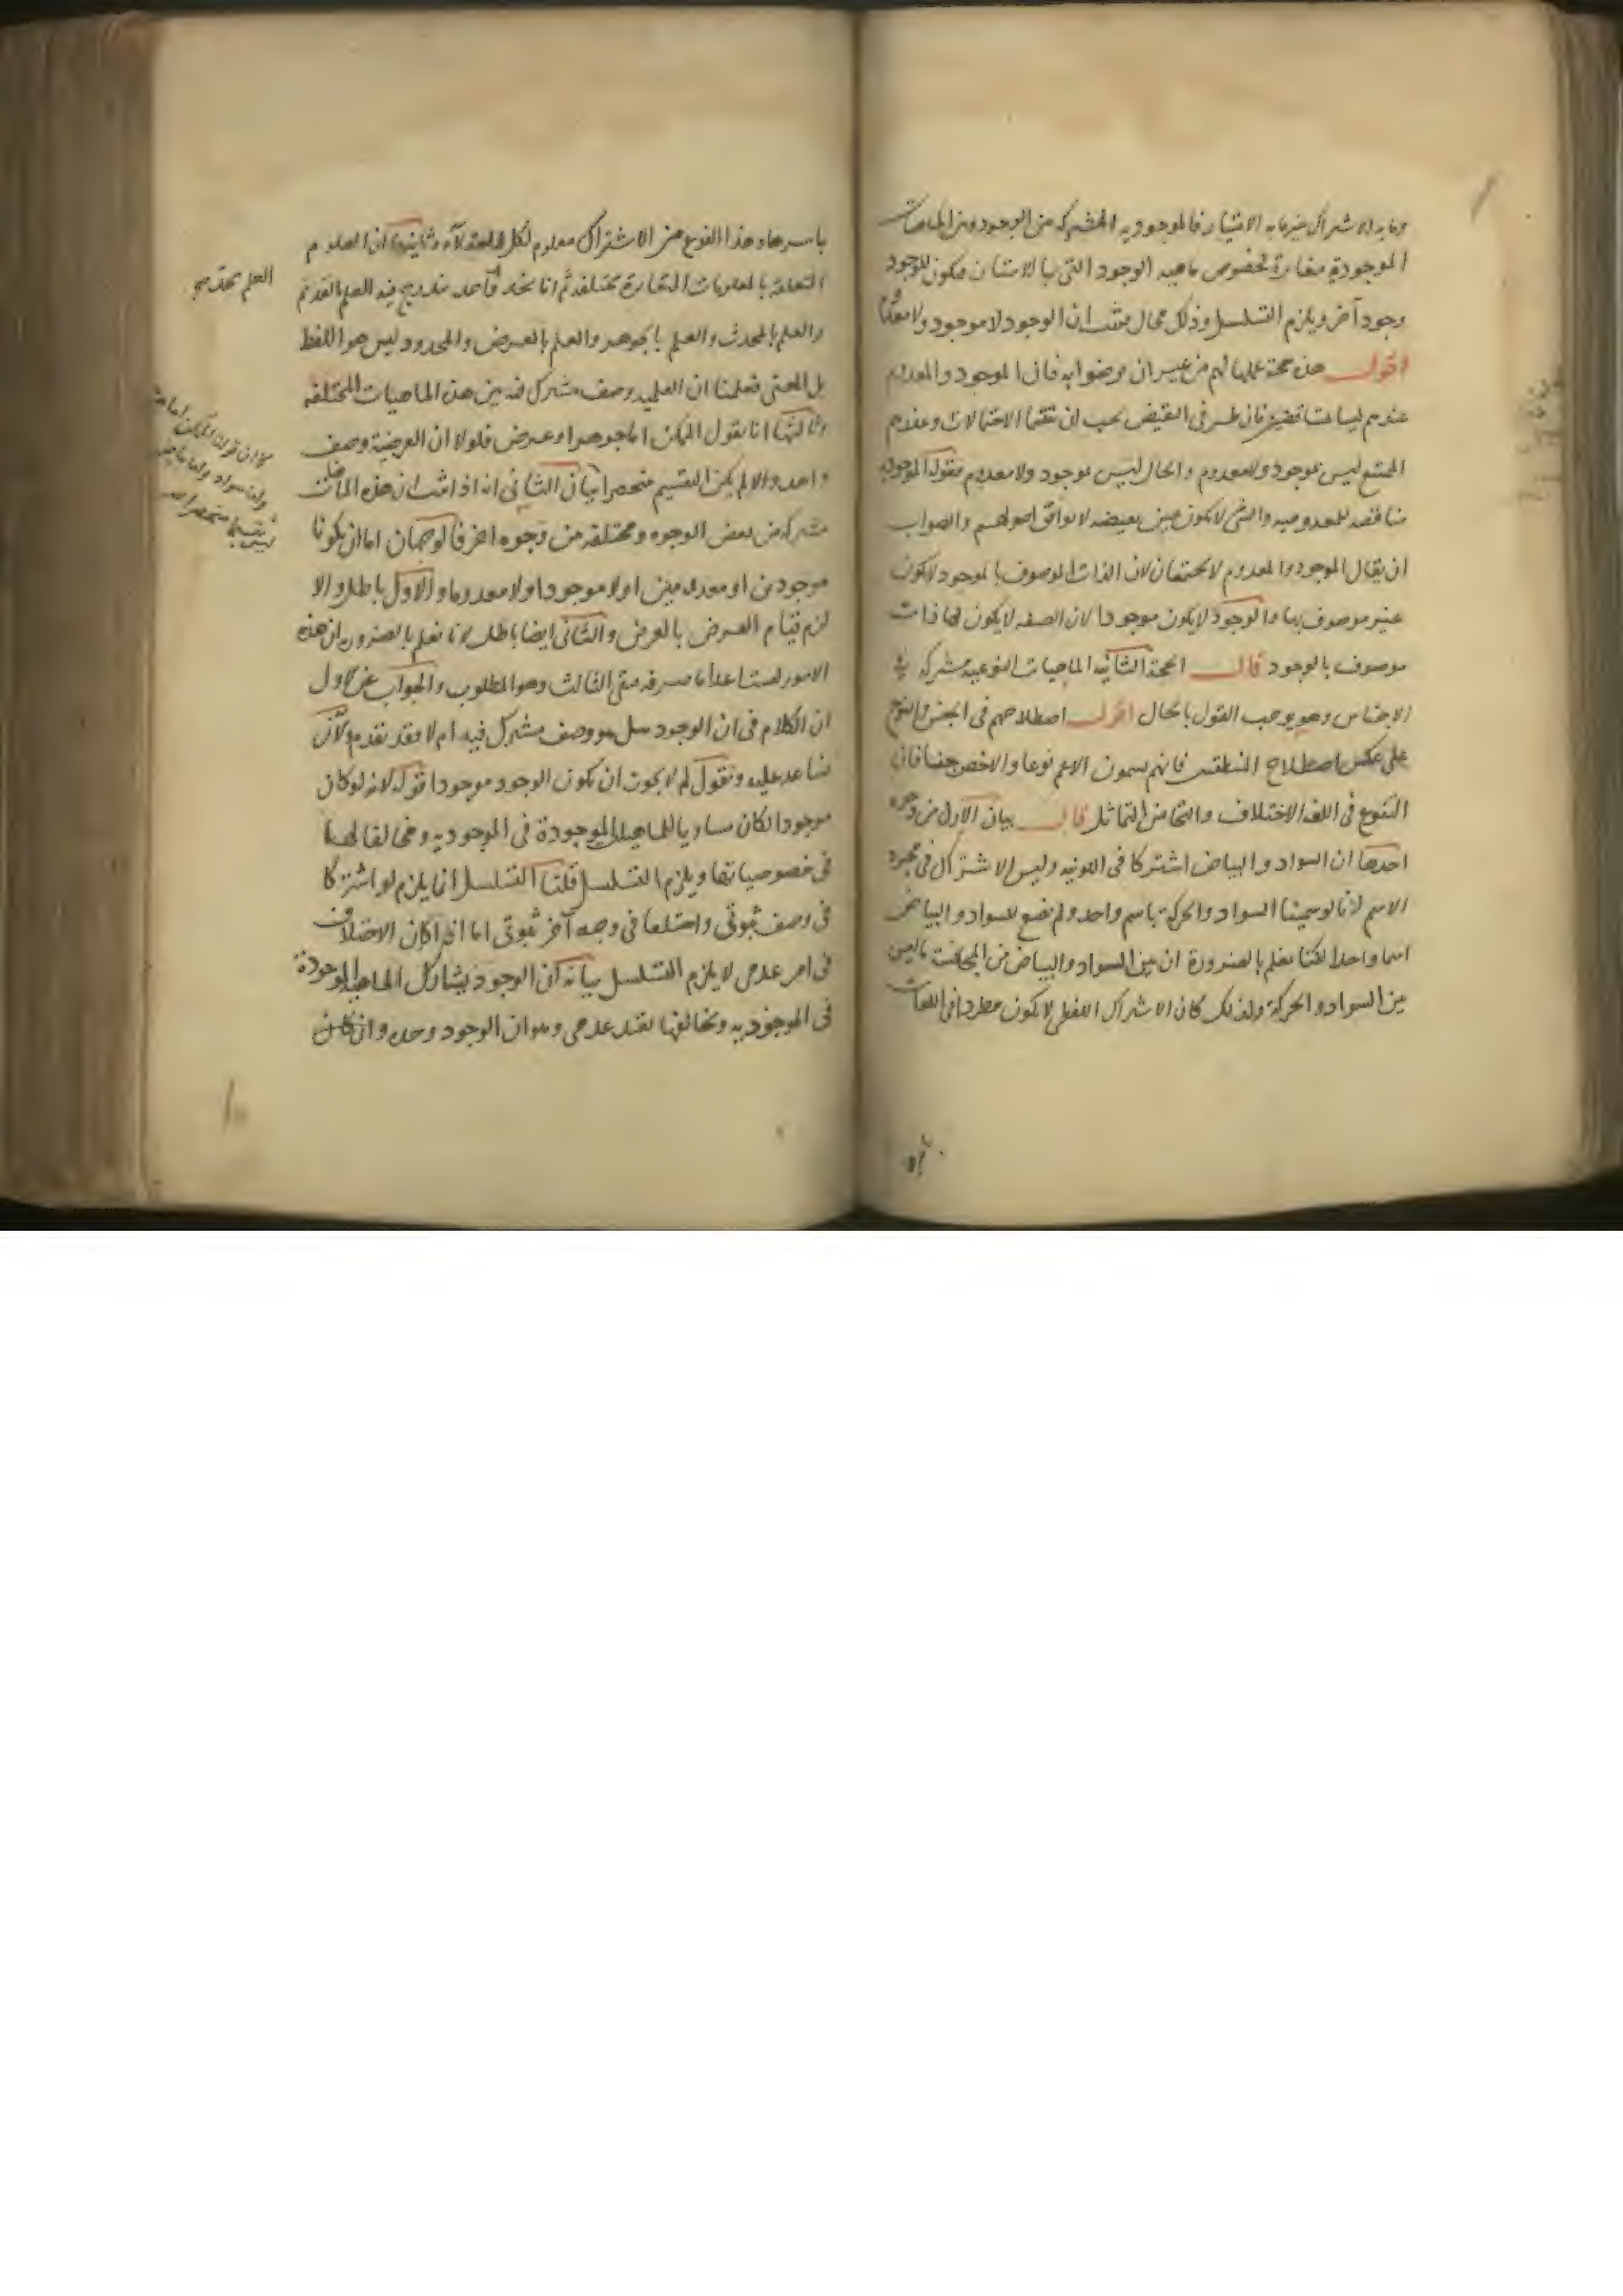 وما به الاشتراك غير ما به الامتياز فالموجودية المشتركة بين الوجود وبين الماهيات
الموجودة مغايرة لخصوص ماهية الوجود التى بها الامتياز فيكون للوجود
وجود آخر ويلزم التسلسل وذلك محال فثبت ان الوجود لا موجود ولا معدوم
اقول هذه حجة عملها لهم من غير ان يرضوا به فان الموجود والمعدوم
عندهم ليسا بمتناقضين فان طرفى النقيض يجب ان يقتسما الاحتمالات وعندهم
الممتنع ليس بموجود ولا معدوم والحال ليس بموجود ولا معدوم فقوله الموجودية
مناقضة للمعدومية والشئ لا يكون عين نقيضه لا يوافق اصولهم والصواب
ان يقال الموجود والمعدوم لا يجتمعان لان الذات الموصوف بالوجود لا يكون
غير موصوف بها والوجود لا يكون موجودا لان الصفة لا يكون لها ذات
موصوف بالوجود قال الحجة الثانية الماهيات النوعية مشتركة فى
الاجناس وهو يوجب القول بالحال اقول اصطلاحهم فى الجنس والنوع
على عكس اصطلاح المنطقيين فانهم يسمون الاعم نوعا والاخص جنسا فان
التنوع فى اللغة الاختلاف والتجانس التماثل قال بيان الاول من وجوه
احدها ان السواد والبياض اشتركا فى اللونية وليس الاشتراك فى مجرد
الاسم لانا لو سمينا السواد والحركة باسم واحد ولم نضع للسواد والبياض
اسما واحدا لكنا نعلم بالضرورة ان بين السواد والبياض من المجانسة ما ليس
بين السواد والحركة ولذلك كان الاشتراك اللفظى لا يكون مطردا فى اللغات
باسرها وهذا النوع من الاشتراك معلوم لكل العقلاء وثانيها ان العلوم
المتعلقة بالمعلومات المتغايرة مختلفة ثم انا نحد واحد يندرج فيه العلم بالقديم
والعلم بالمحدث والعلم بالجوهر والعلم بالعرض والمحدود ليس هو اللفظ
بل المعنى فعلمنا ان العلمية وصف مشترك فيه بين هذه الماهيات المختلفة
وثالثها انا نقول الممكن اما جوهر او عرض فلولا ان العرضية وصف
واحد والا لم يكن التقسيم منحصرا بيان الثانى انه اذا ثبت ان هذه الماهيات
مشتركة من بعض الوجوه ومختلفة من وجوه اخر فالوجهان اما ان يكونا
موجودين او معدومين او لا موجودا ولا معدوما والاول باطل والا
لزم قيام العرض بالعرض والثانى ايضا باطل لانا نعلم بالضرورة ان هذه
الامور ليست اعداما صرفة فبقى الثالث وهو المطلوب والجواب عن الاول
ان الكلام فى ان الوجود هل هو وصف مشترك فيه ام لا فقد تقدم ولكن
نساعد عليه ونقول لم لا يجوز ان يكون الوجود موجودا قوله لانه لو كان
موجودا لكان مساويا للماهية الموجودة فى الموجودية ومخالفا لها
فى خصوصياتها ويلزم التسلسل قلنا التسلسل انما يلزم لو اشتركا
فى وصف ثبوتى واختلفا فى وجه آخر ثبوتى اما اذا كان الاختلاف
فى امر عدمى لا يلزم التسلسل بيانه ان الوجود يشارك الماهية الموجودة
فى الموجودية ويخالفها بقيد عدمى وهو ان الوجود وحده وان كان